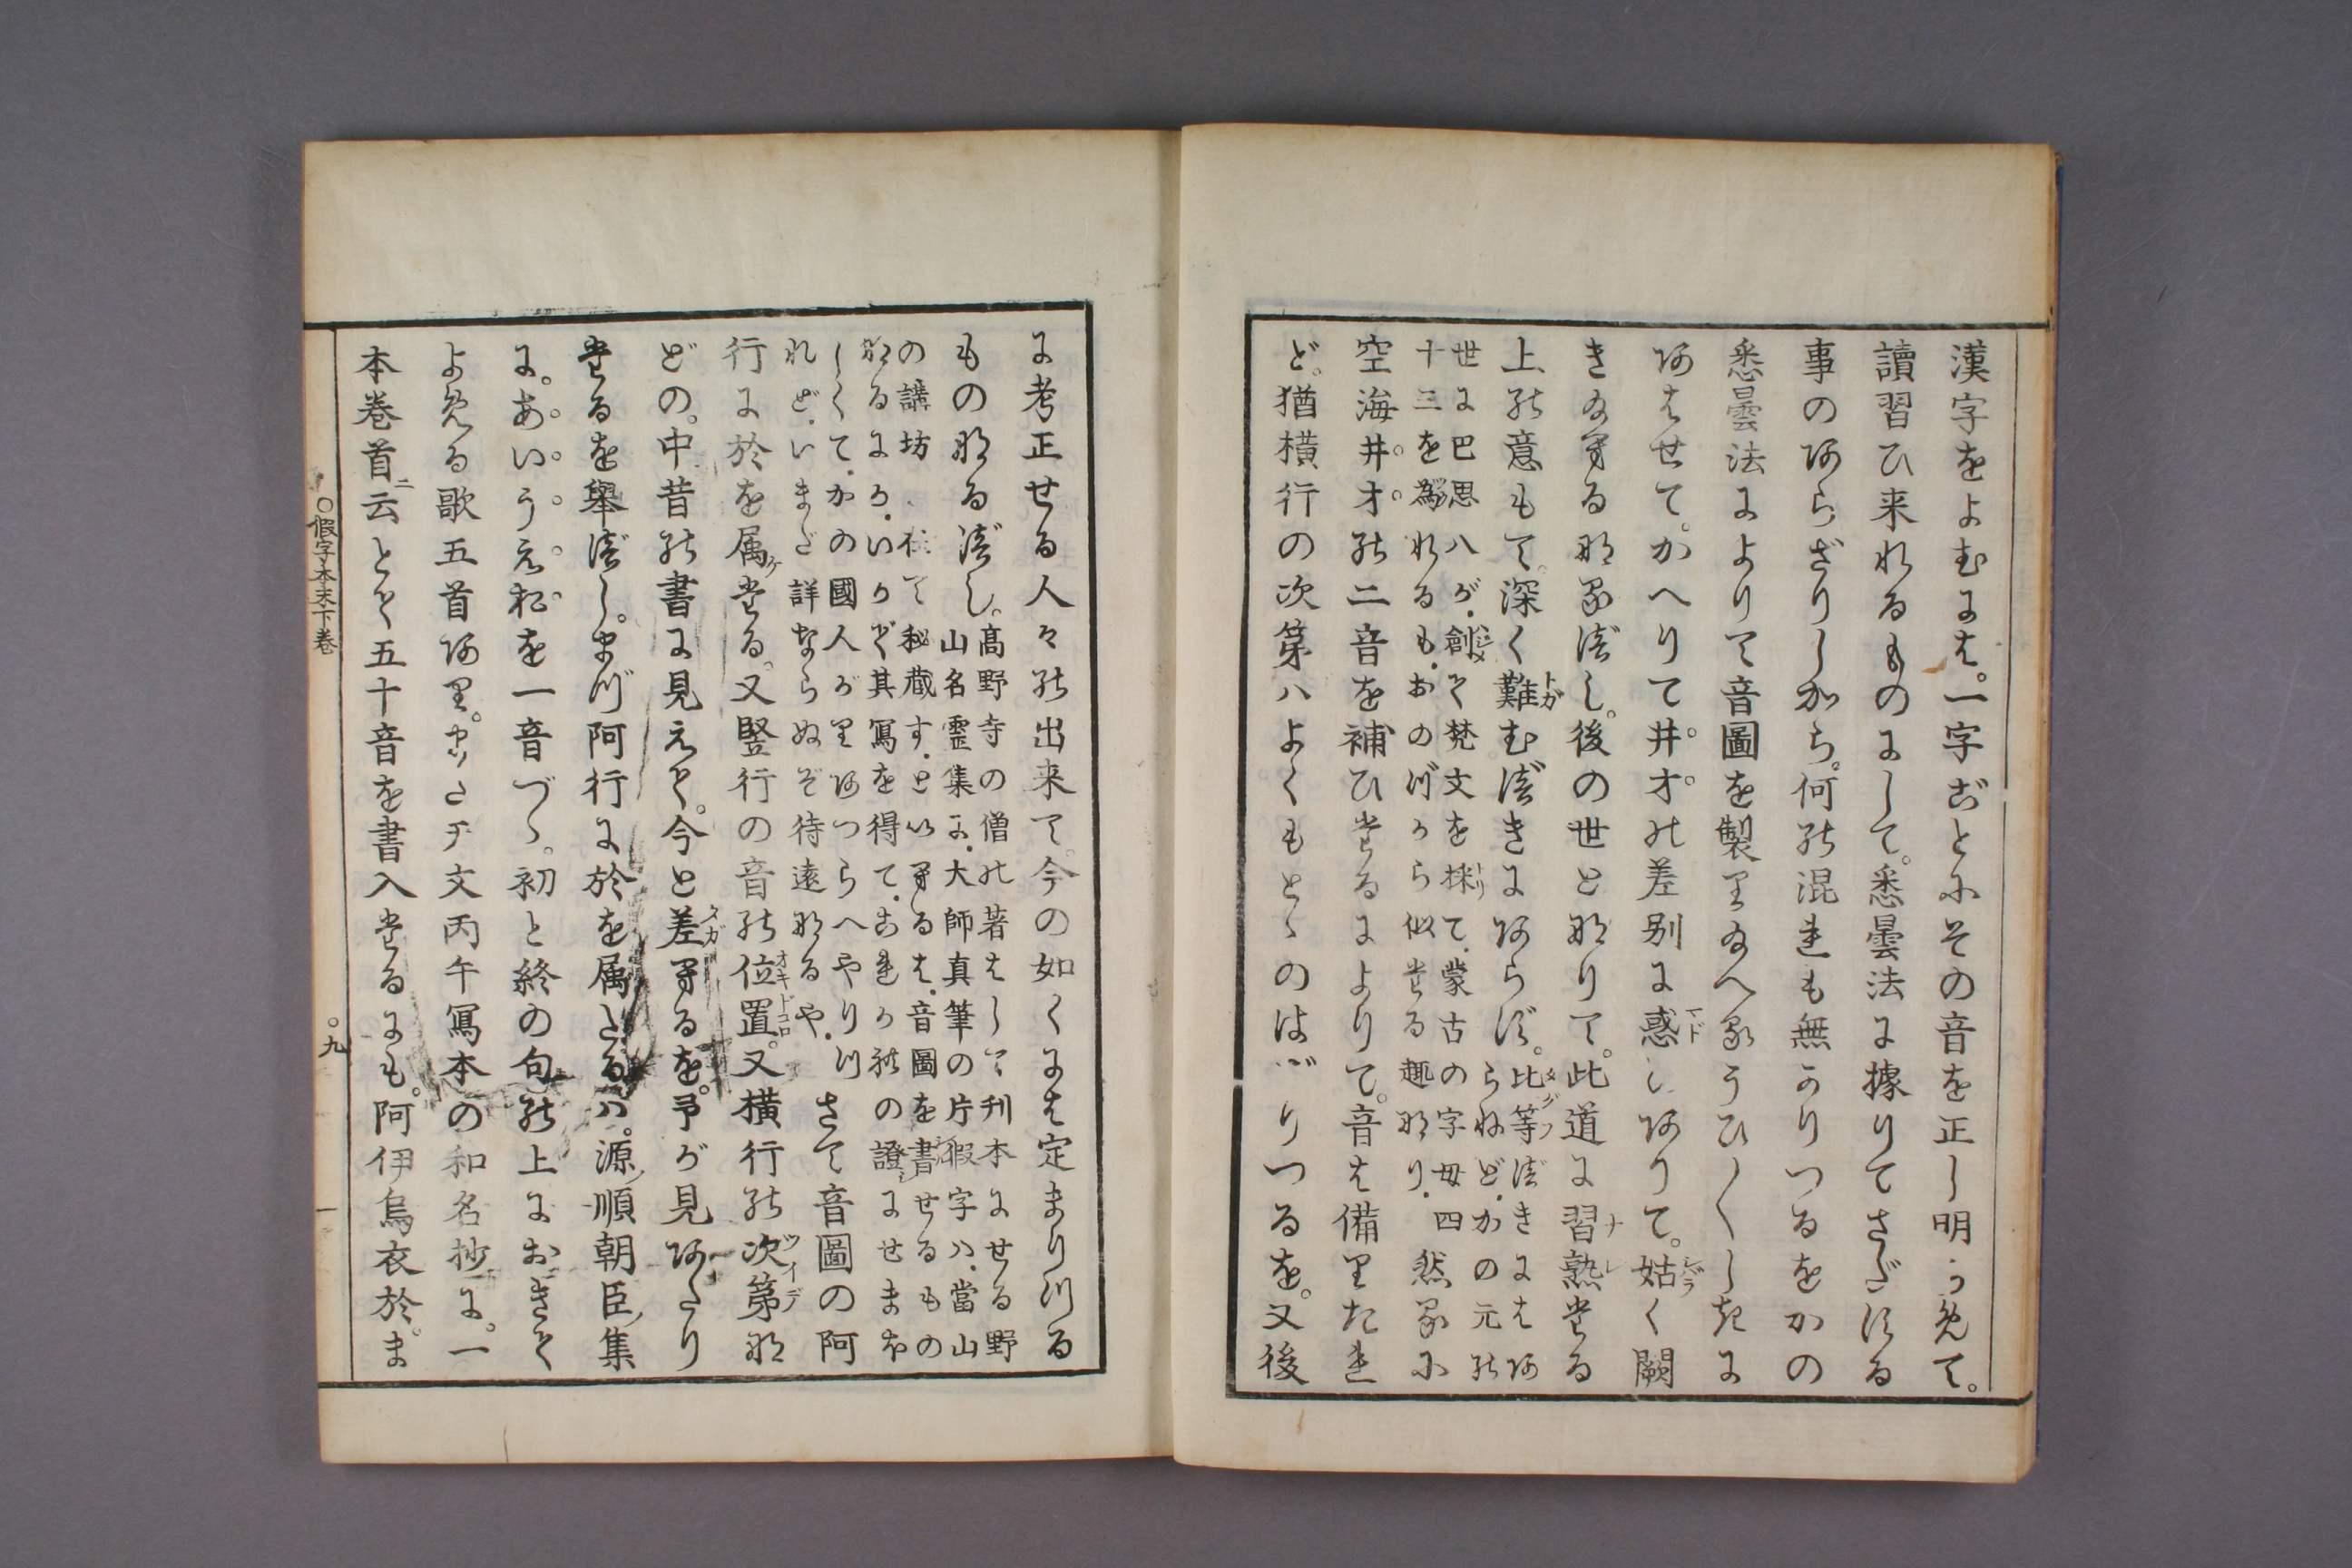 漢字をよむには。一字ごとにその音を正し明らめて。
讀習ひ来れるものにして。悉曇法に據りてさだむる
事のあらざりしから。何の混れも無かりつるをかの
悉曇法によりて音圖を製りなへるうひ〳〵しきに
あはせて。かへりて井。オ。の差別に惑ひありて。姑く闕
きなせるなるべし。後の世となりて。此道に習熟たる
上の意もて。深く難むべきにあらず。比等べきにはあ
らねど。かの元の
世に巴思八が。創て梵文を採て。蒙古の字母四
十三を為れるも。おのづから似たる趣なり。然るに
空海井。オ。の二音を補ひたるによりて。音は備りたれ
ど。猶横行の次第ハよくもとゝのはざりつるを。又後
に考正せる人々の出来て。今の如くには定まりつる
ものなるべし。高野寺の僧の著はして刊本にせる野
山名靈集に。大師真筆の片假字ハ。當山
の講坊に在て秘蔵す。といへるは。音圖を書せるもの
なるにか。いかで其寫を得て。これかれの證にせまほ
しくて。かの國人がりあつらへやりつ
れど。いまだ詳ならぬぞ待遠なるや。さて音圖の阿
行に於を属たる。又竪行の音の位置。又横行の次第な
どの。中昔の書に見えて。今と差へるを。予が見あたり
たるを擧べし。まづ阿行に於を属たるハ。源順朝臣集
に。あ。い。う。え。お。を一音づゝ。初と終の句の上におきて
よめる歌五首あり。中文丙午寫本の和名抄に。一
本巻首ニ云とて五十音を書入たるにも。阿伊烏衣於。ま
○假字本末下巻
○九